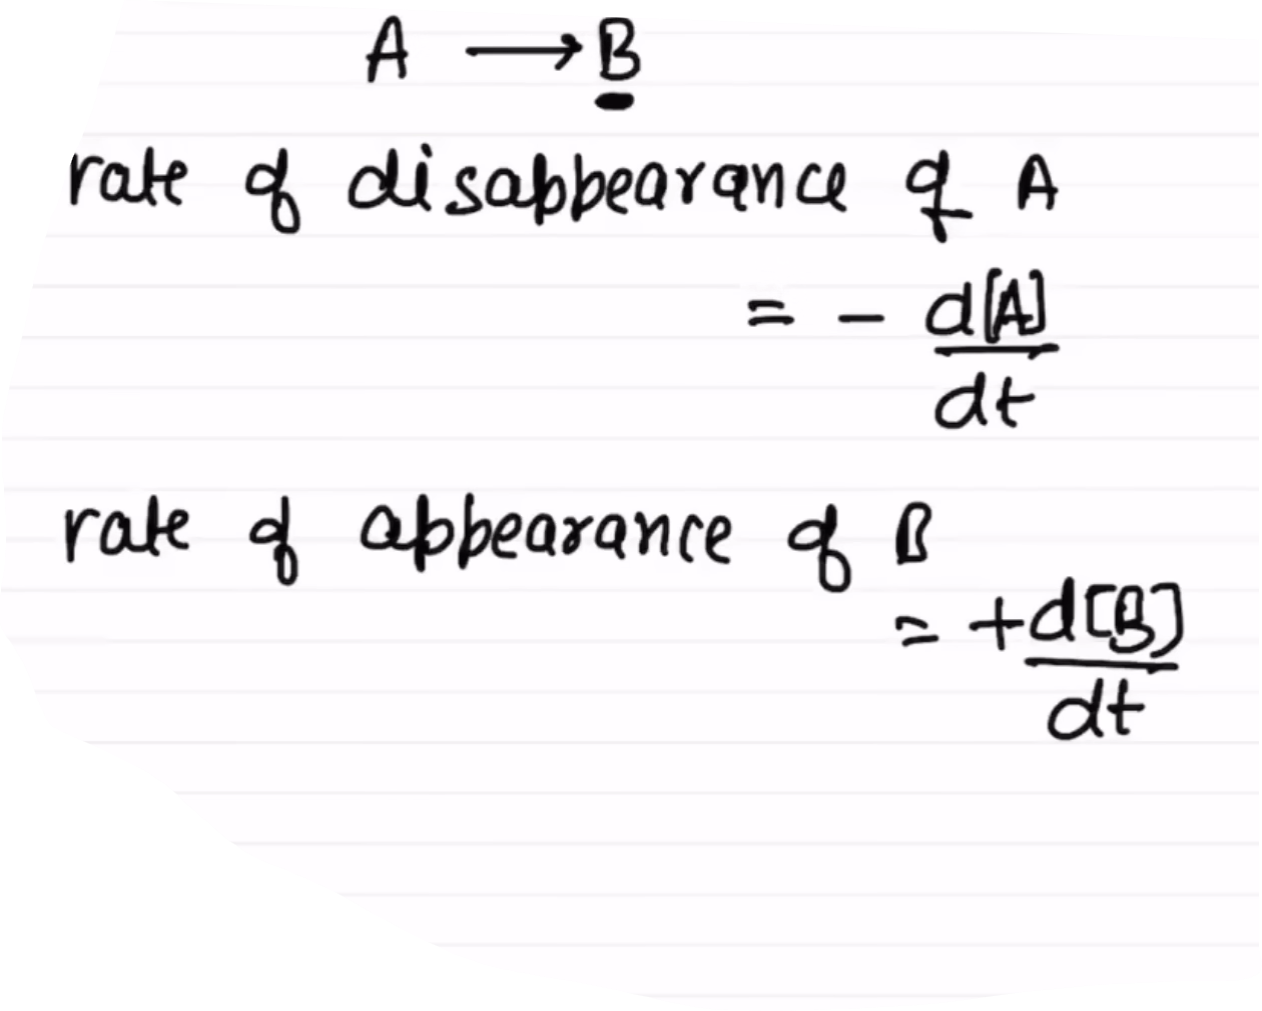 A ⟶ B
rate of disappearance of A
= - d[A]/dt
rate of appearance of B
= + d[B]/dt